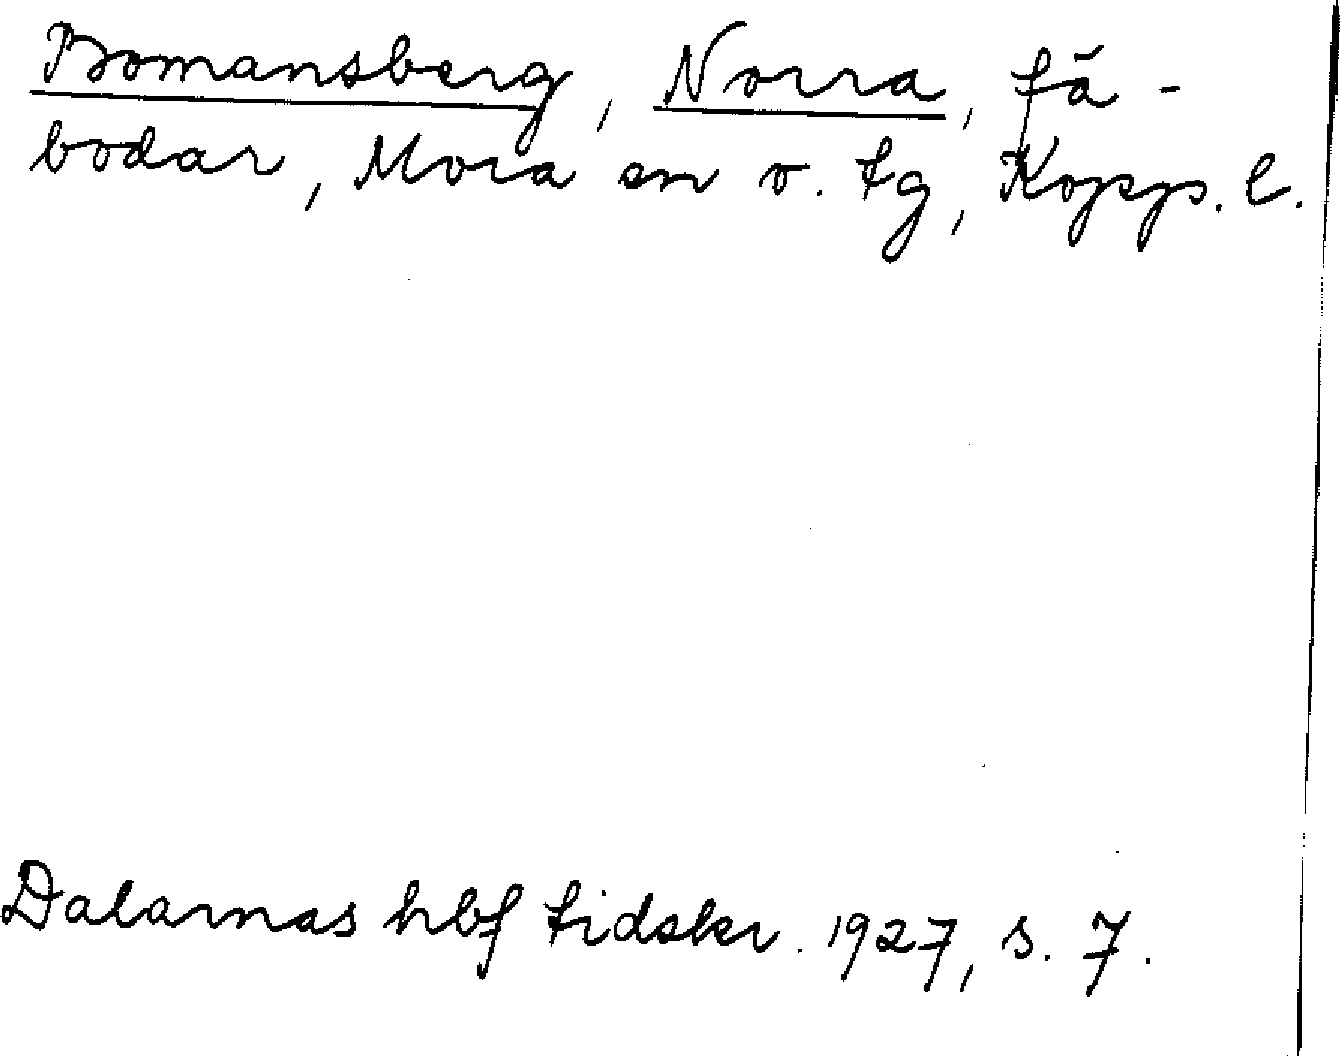 Bomansberg, Norra, fä-
bodar, Mora sn o. tg, Kopp. l.
Dalarnas hbf tidskr. 1927, s. 7.